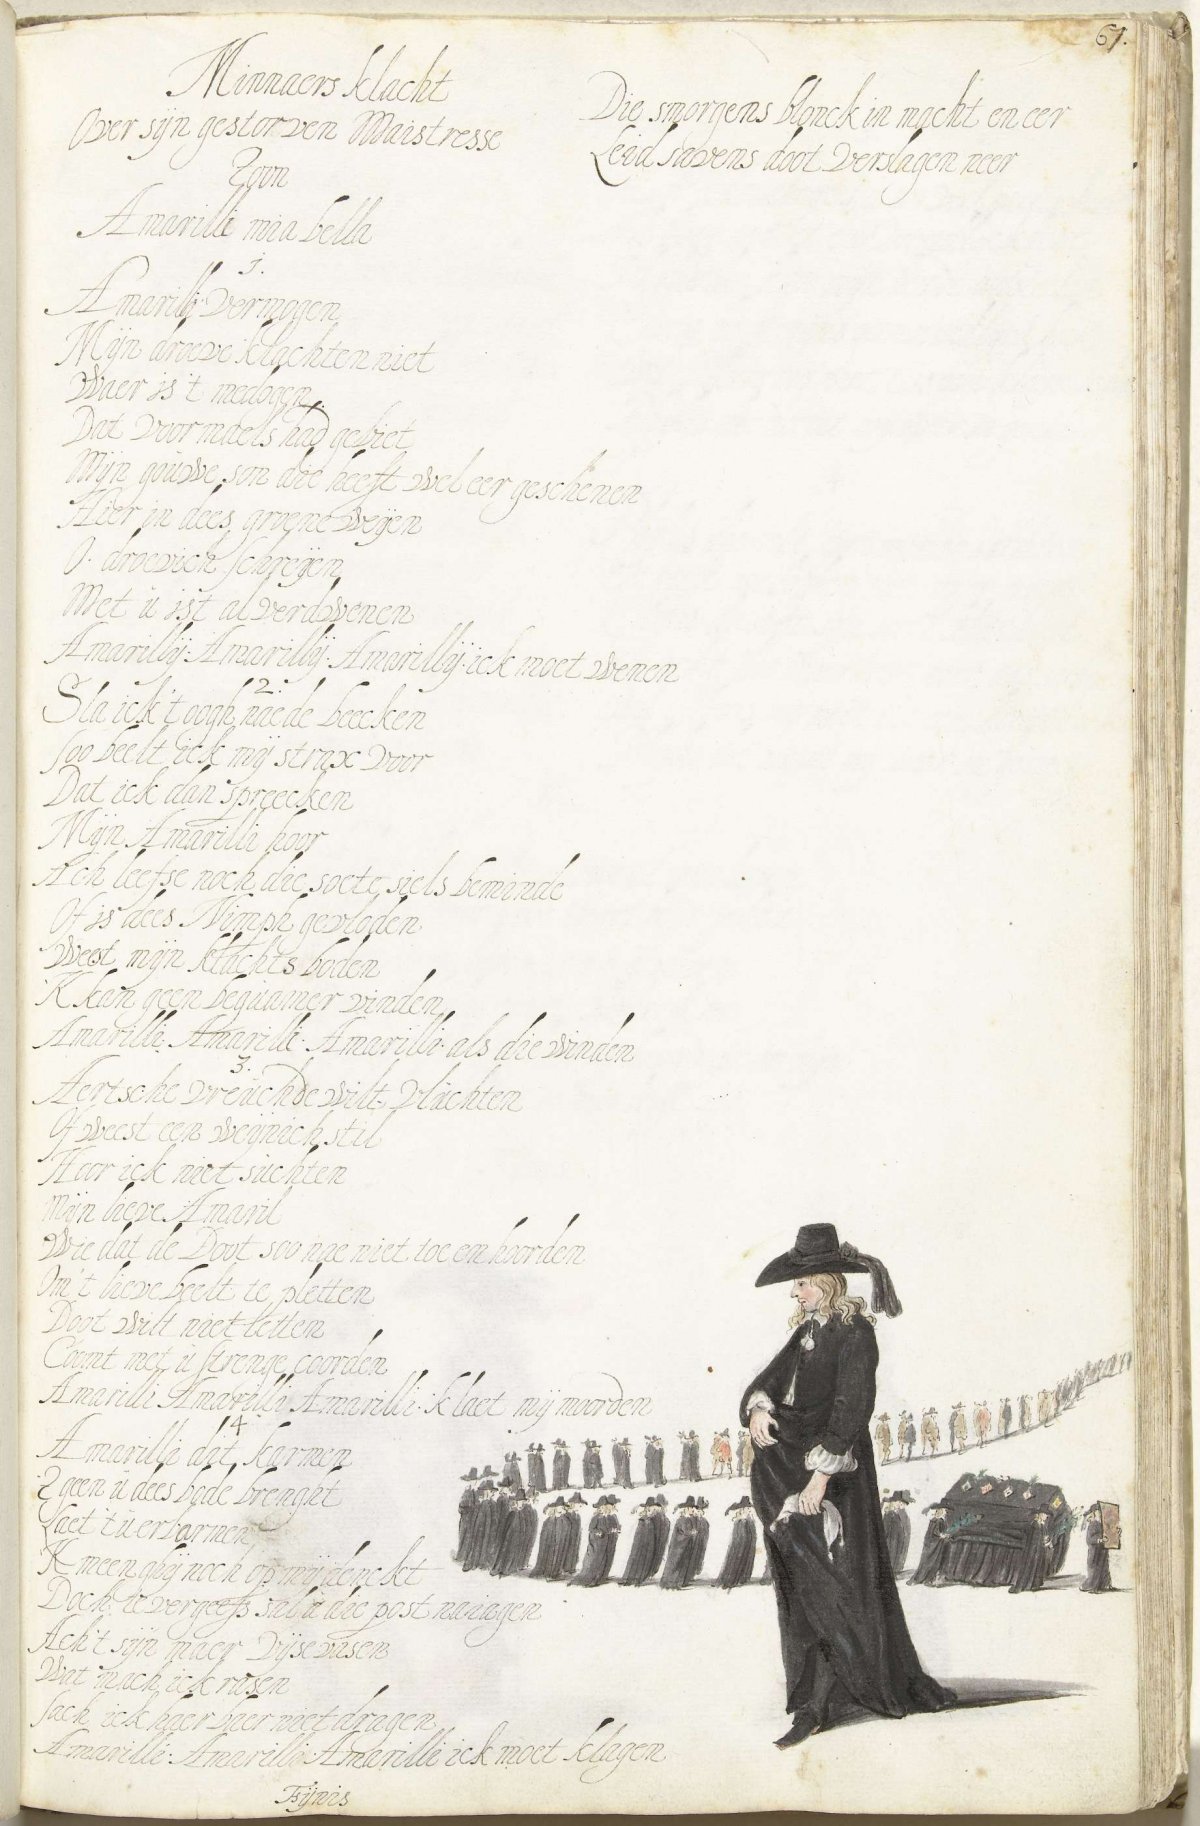 61.
Minnaers klacht
Over sijn gestorven Maistresse
Toon
Amarilli mia bella
1.
Amarilli vermogen
Mijn droeve klachten niet
Waer is 't medogen
Dat voormaels had gebiet
Mijn gouwe son die heeft wel eer geschenen
Hier in dees groene weyen
O droevich schreyen
Met u ist al verdwenen
Amarillij Amarillij Amarillij ick moet wenen
2.
Sla ick 't oogh nae de beecken
soo beelt ick mij strax voor
Dat ick dan spreecken
Mijn Amarilli hoor
Ach leefse noch die soete siels beminde
Of is dees Nimph gevloden
Weest mijn klachts boden
K kan geen bequamer vinden
Amarilli Amarilli Amarilli als die winden
3.
Aertsche vreuchde wilt vluchten
Of weest een weijnich stil
Hoor ick niet suchten
Mijn lieve Amaril
Wie dat de Doot soo nae niet toe en hoorden
Om 't lieve beelt te pletten
Doot wilt niet letten
Coomt met u strenge coorden
Amarilli Amarilli Amarilli k laet mij moorden
4.
Amarilli dat karmen
T geen u dees bode brenght
Laet 't u erbarmen
K meen ghij noch op mij denckt
Doch te vergeefs sal u die post naiagen
Ach 't sijn maer vijsevasen
Wat mach ick rasen
Sach ick haer baer niet dragen
Amarilli Amarilli Amarilli ick moet klagen
Fijnis
Die smorgens blonck in macht en eer
Leid savens doot verslagen neer